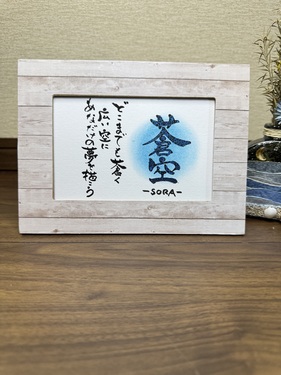 蒼空
-SORA-
どこまでも蒼く
広い空に
あなただけの夢を描こう